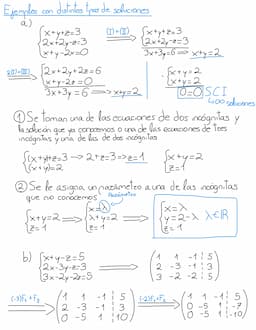 Ejemplos con distintos tipos de soluciones
a) { x+y+z=3 (I)+(II) { x+y+z=3
2x+2y-z=3 ⟹ 2x+2y-z=3
x+y-2z=0 3x+3y=6 ⟹ x+y=2
2(I)+(III) ⟹ { 2x+2y+2z=6 { x+y=2
x+y-2z=0 x+y=2
3x+3y=6 ⟹ x+y=2 0=0 SCI
∞ soluciones
① Se toman una de las ecuaciones de dos incógnitas y
la solución que ya conocemos o una de las ecuaciones de tres
incógnitas y una de las de dos incógnitas
{ (x+y)+z=3 ⟶ 2+z=3 ⟹ z=1 { x+y=2
(x+y)=2 z=1
② Se le asigna un parámetro a una de las incógnitas
que no conocemos Parámetro
{ x+y=2 ⟹ { x=λ ⟹ { x=λ
z=1 x+y=2 y=2-λ λ∈ℝ
z=1 z=1
b) { x+y-z=5 ( 1 1 -1 | 5 )
2x-3y-z=3 ( 2 -3 -1 | 3 )
3x-2y-2z=5 ( 3 -2 -2 | 5 )
(-3)F₁+F₃ ⟹ ( 1 1 -1 | 5 ) (-2)F₁+F₂ ⟹ ( 1 1 -1 | 5 )
( 2 -3 -1 | 3 ) ( 0 -5 1 | -7 )
( 0 -5 1 | -10 ) ( 0 -5 1 | -10 )